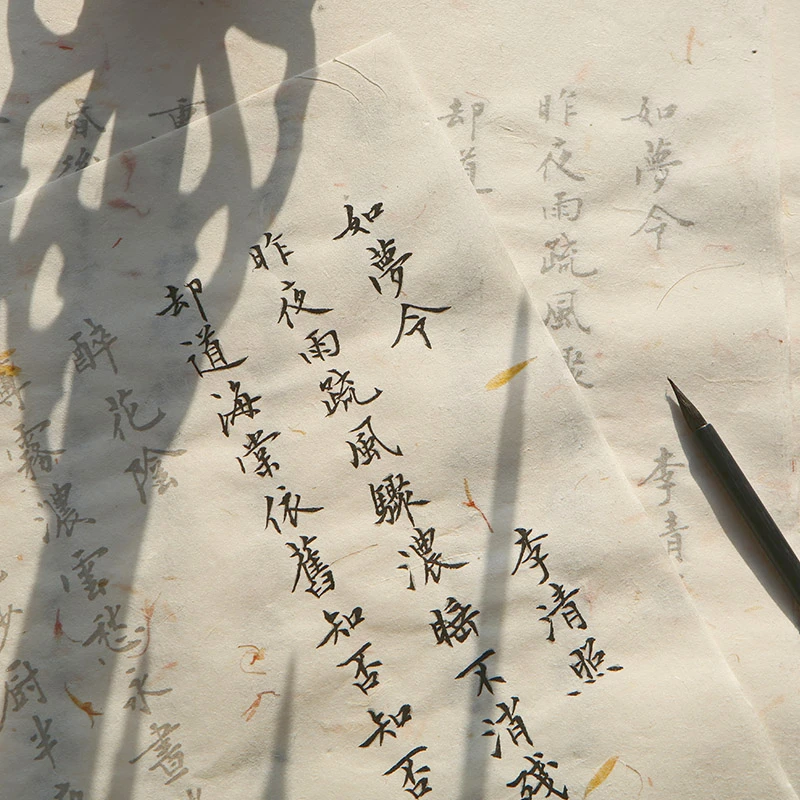 如夢令 李清照
昨夜雨疏風驟濃睡不消殘
却道海棠依舊知否知否
如夢令 李清
昨夜雨疏風驟
却道
重
昏後
醉花陰
薄霧濃雲愁永晝
紗厨半